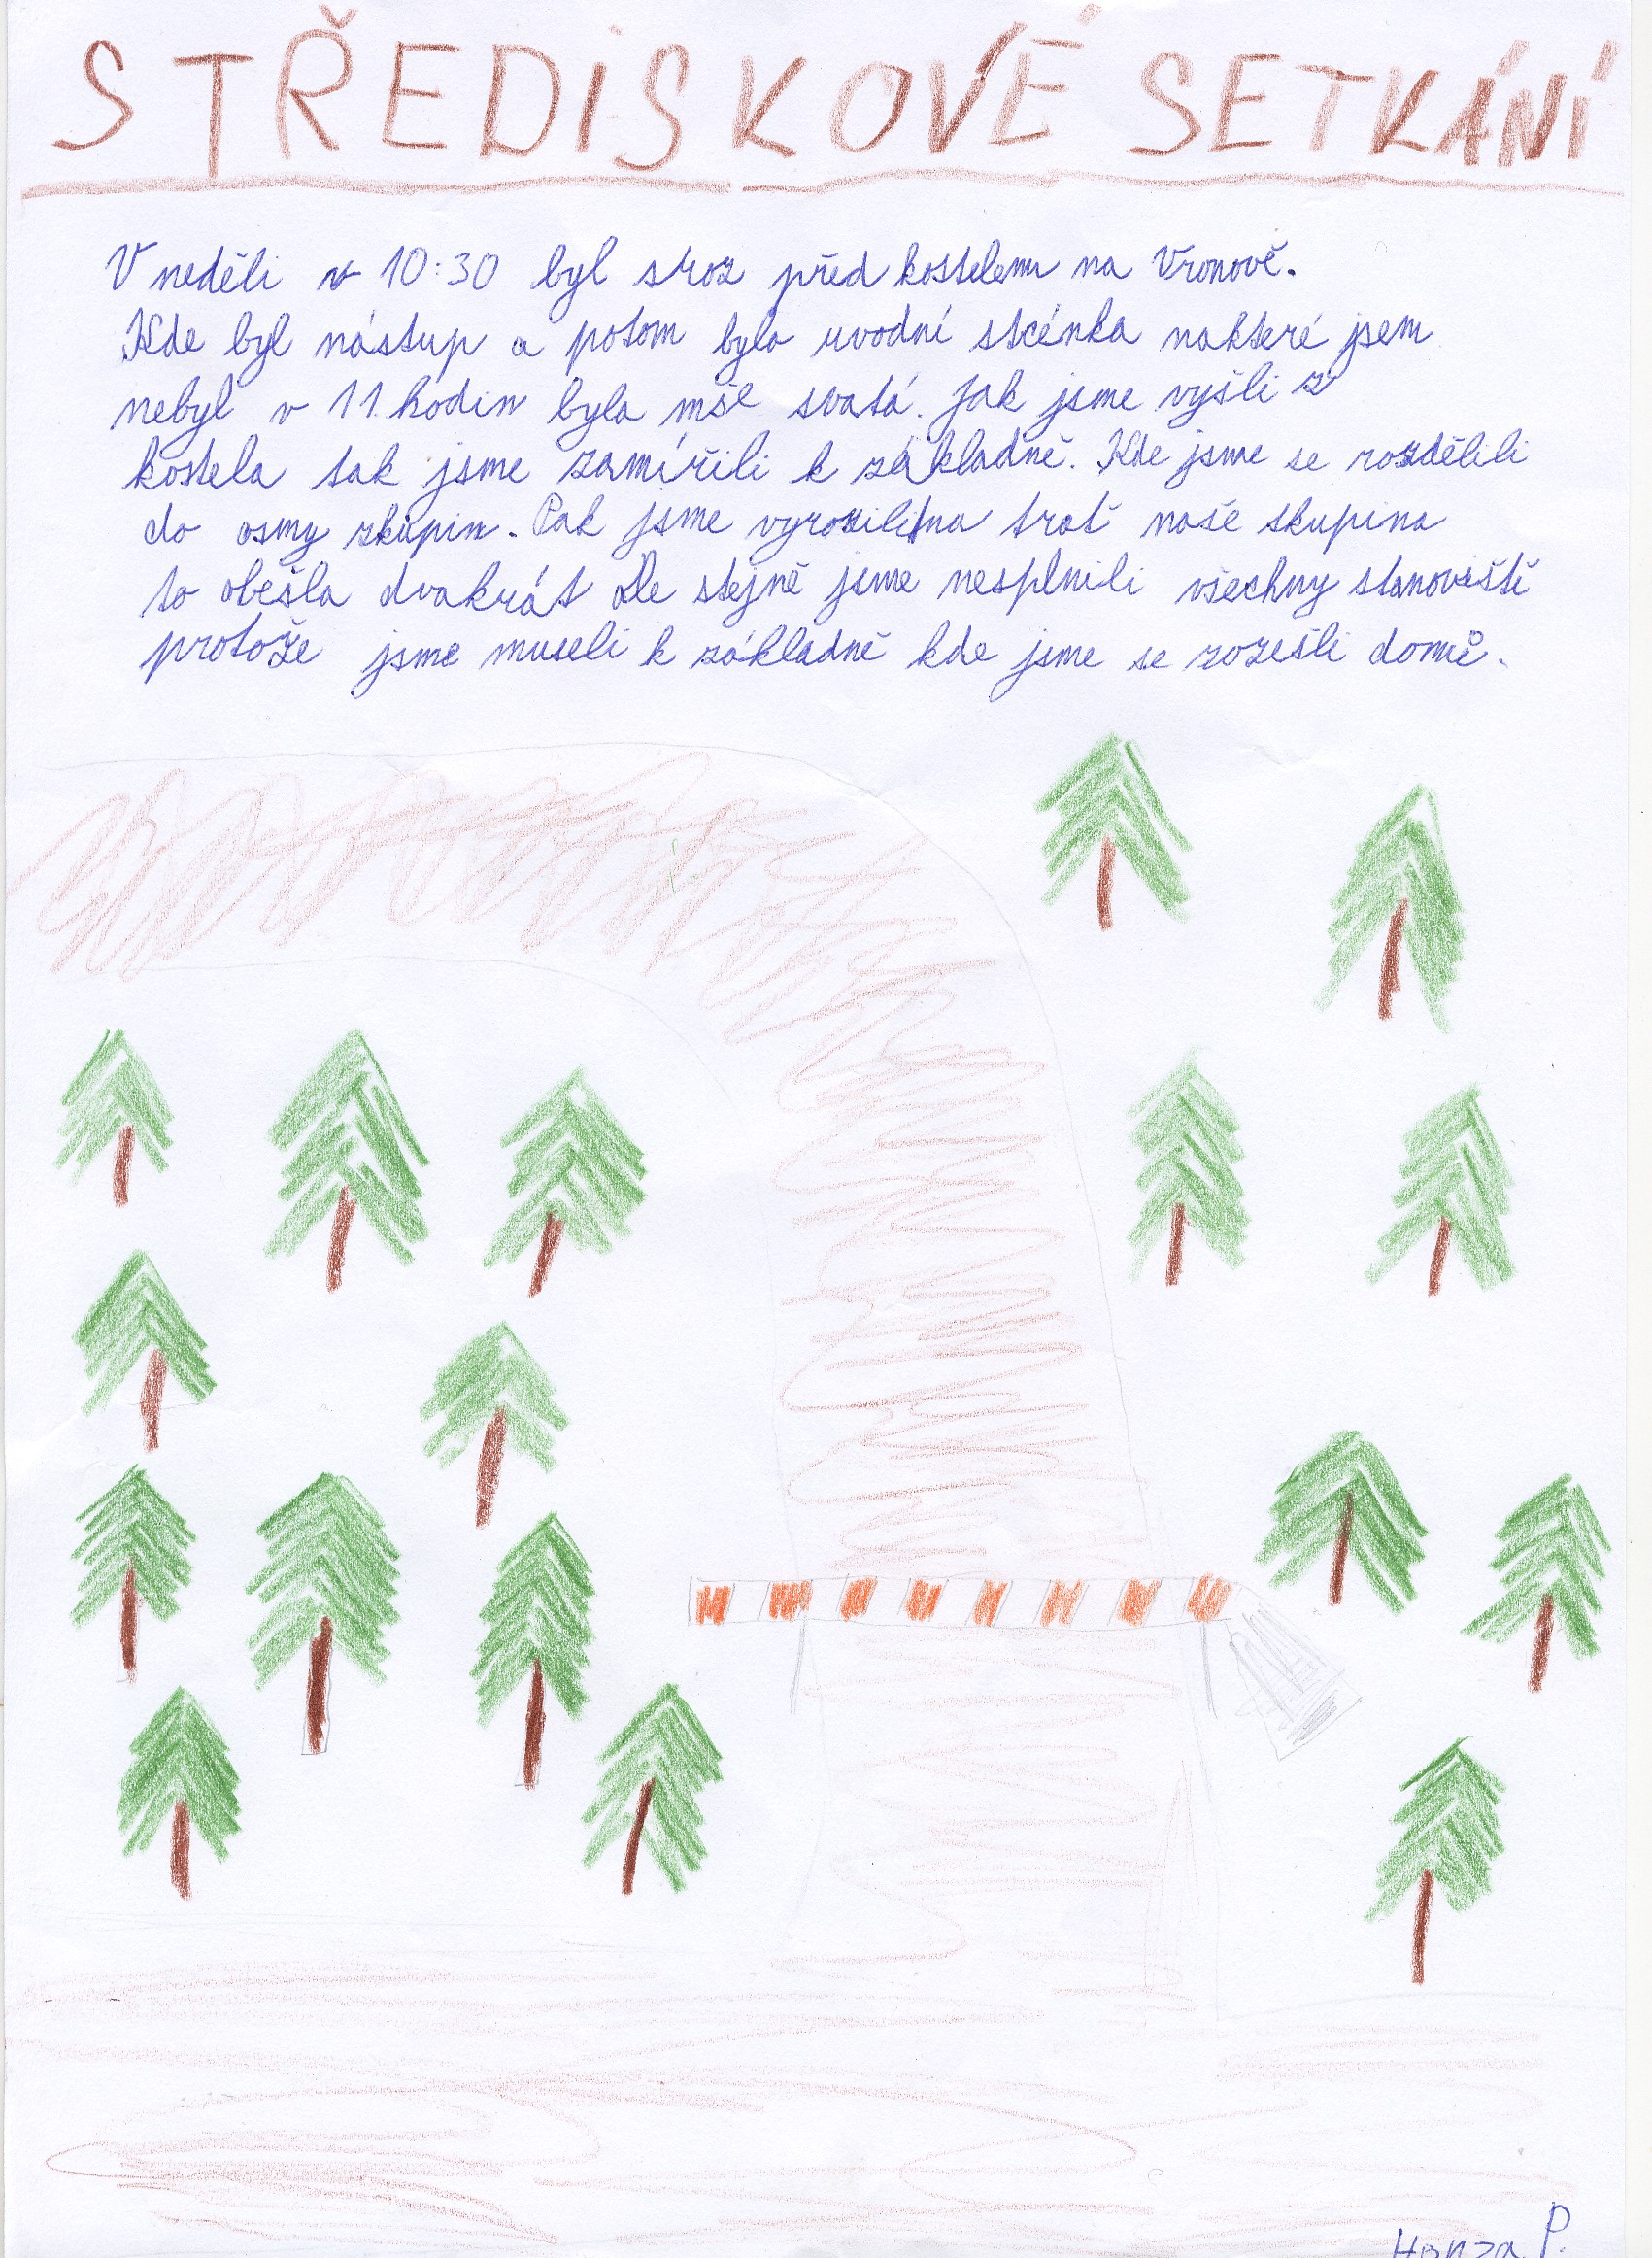 STŘEDISKOVÉ SETKÁNÍ
V neděli v 10:30 byl sraz před kostelem na Vranově.
Kde byl nástup a potom byla uvodní stcénka nakteré jsem
nebyl v 11 hodin byla mše svatá. Jak jsme vyšli z
kostela tak jsme zamířili k základně. Kde jsme se rozdělili
do osmy zkupin. Pak jsme vyrazili na trať naše skupina
to obešla dvakrát Ale stejně jsme nesplnili všechny stanoviště
protože jsme museli k základně kde jsme se rozešli domů.
Honza P.